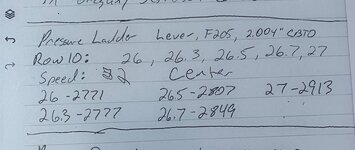 Pressure Ladder Lever, F205, 2.004" CBTO
Row 10: 26, 26.3, 26.5, 26.7, 27
Speed: Center
26-2771 26.5-2807 27-2913
26.3-2777 26.7-2849